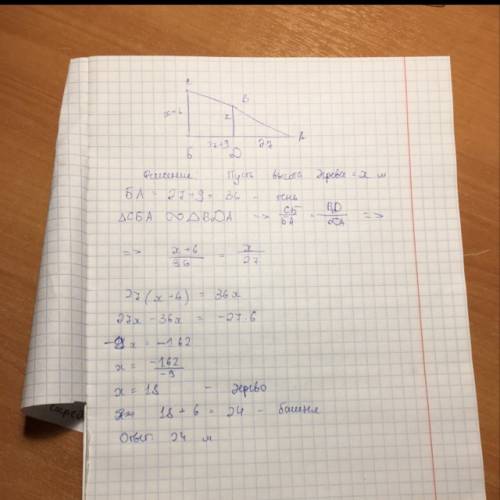 C
B
x+6
x
A
Б
D
27
Решение Пусть высота дерева = x м
БА = 27+9 = 36 - тень
ΔCБA ∞ ΔBDA => CБ/БA = BD/DA =>
=> x+6/36 = x/27
27(x+6) = 36x
27x - 36x = -27·6
-9x = -162
x = -162/-9
x = 18 - дерево
18 + 6 = 24 - башня
Ответ 24 м